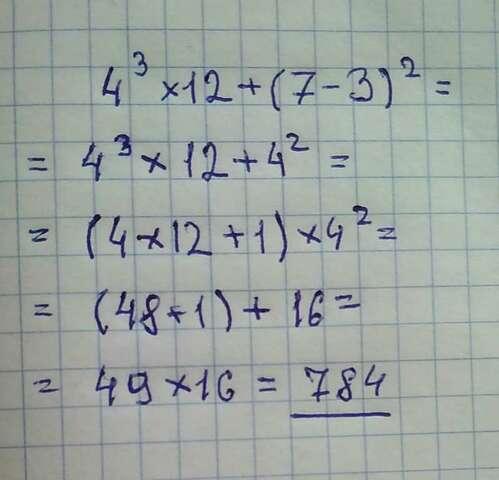 4³ × 12 + (7 - 3)² =
= 4³ × 12 + 4² =
= (4 × 12 + 1) × 4² =
= (48 + 1) + 16 =
= 49 × 16 = 784